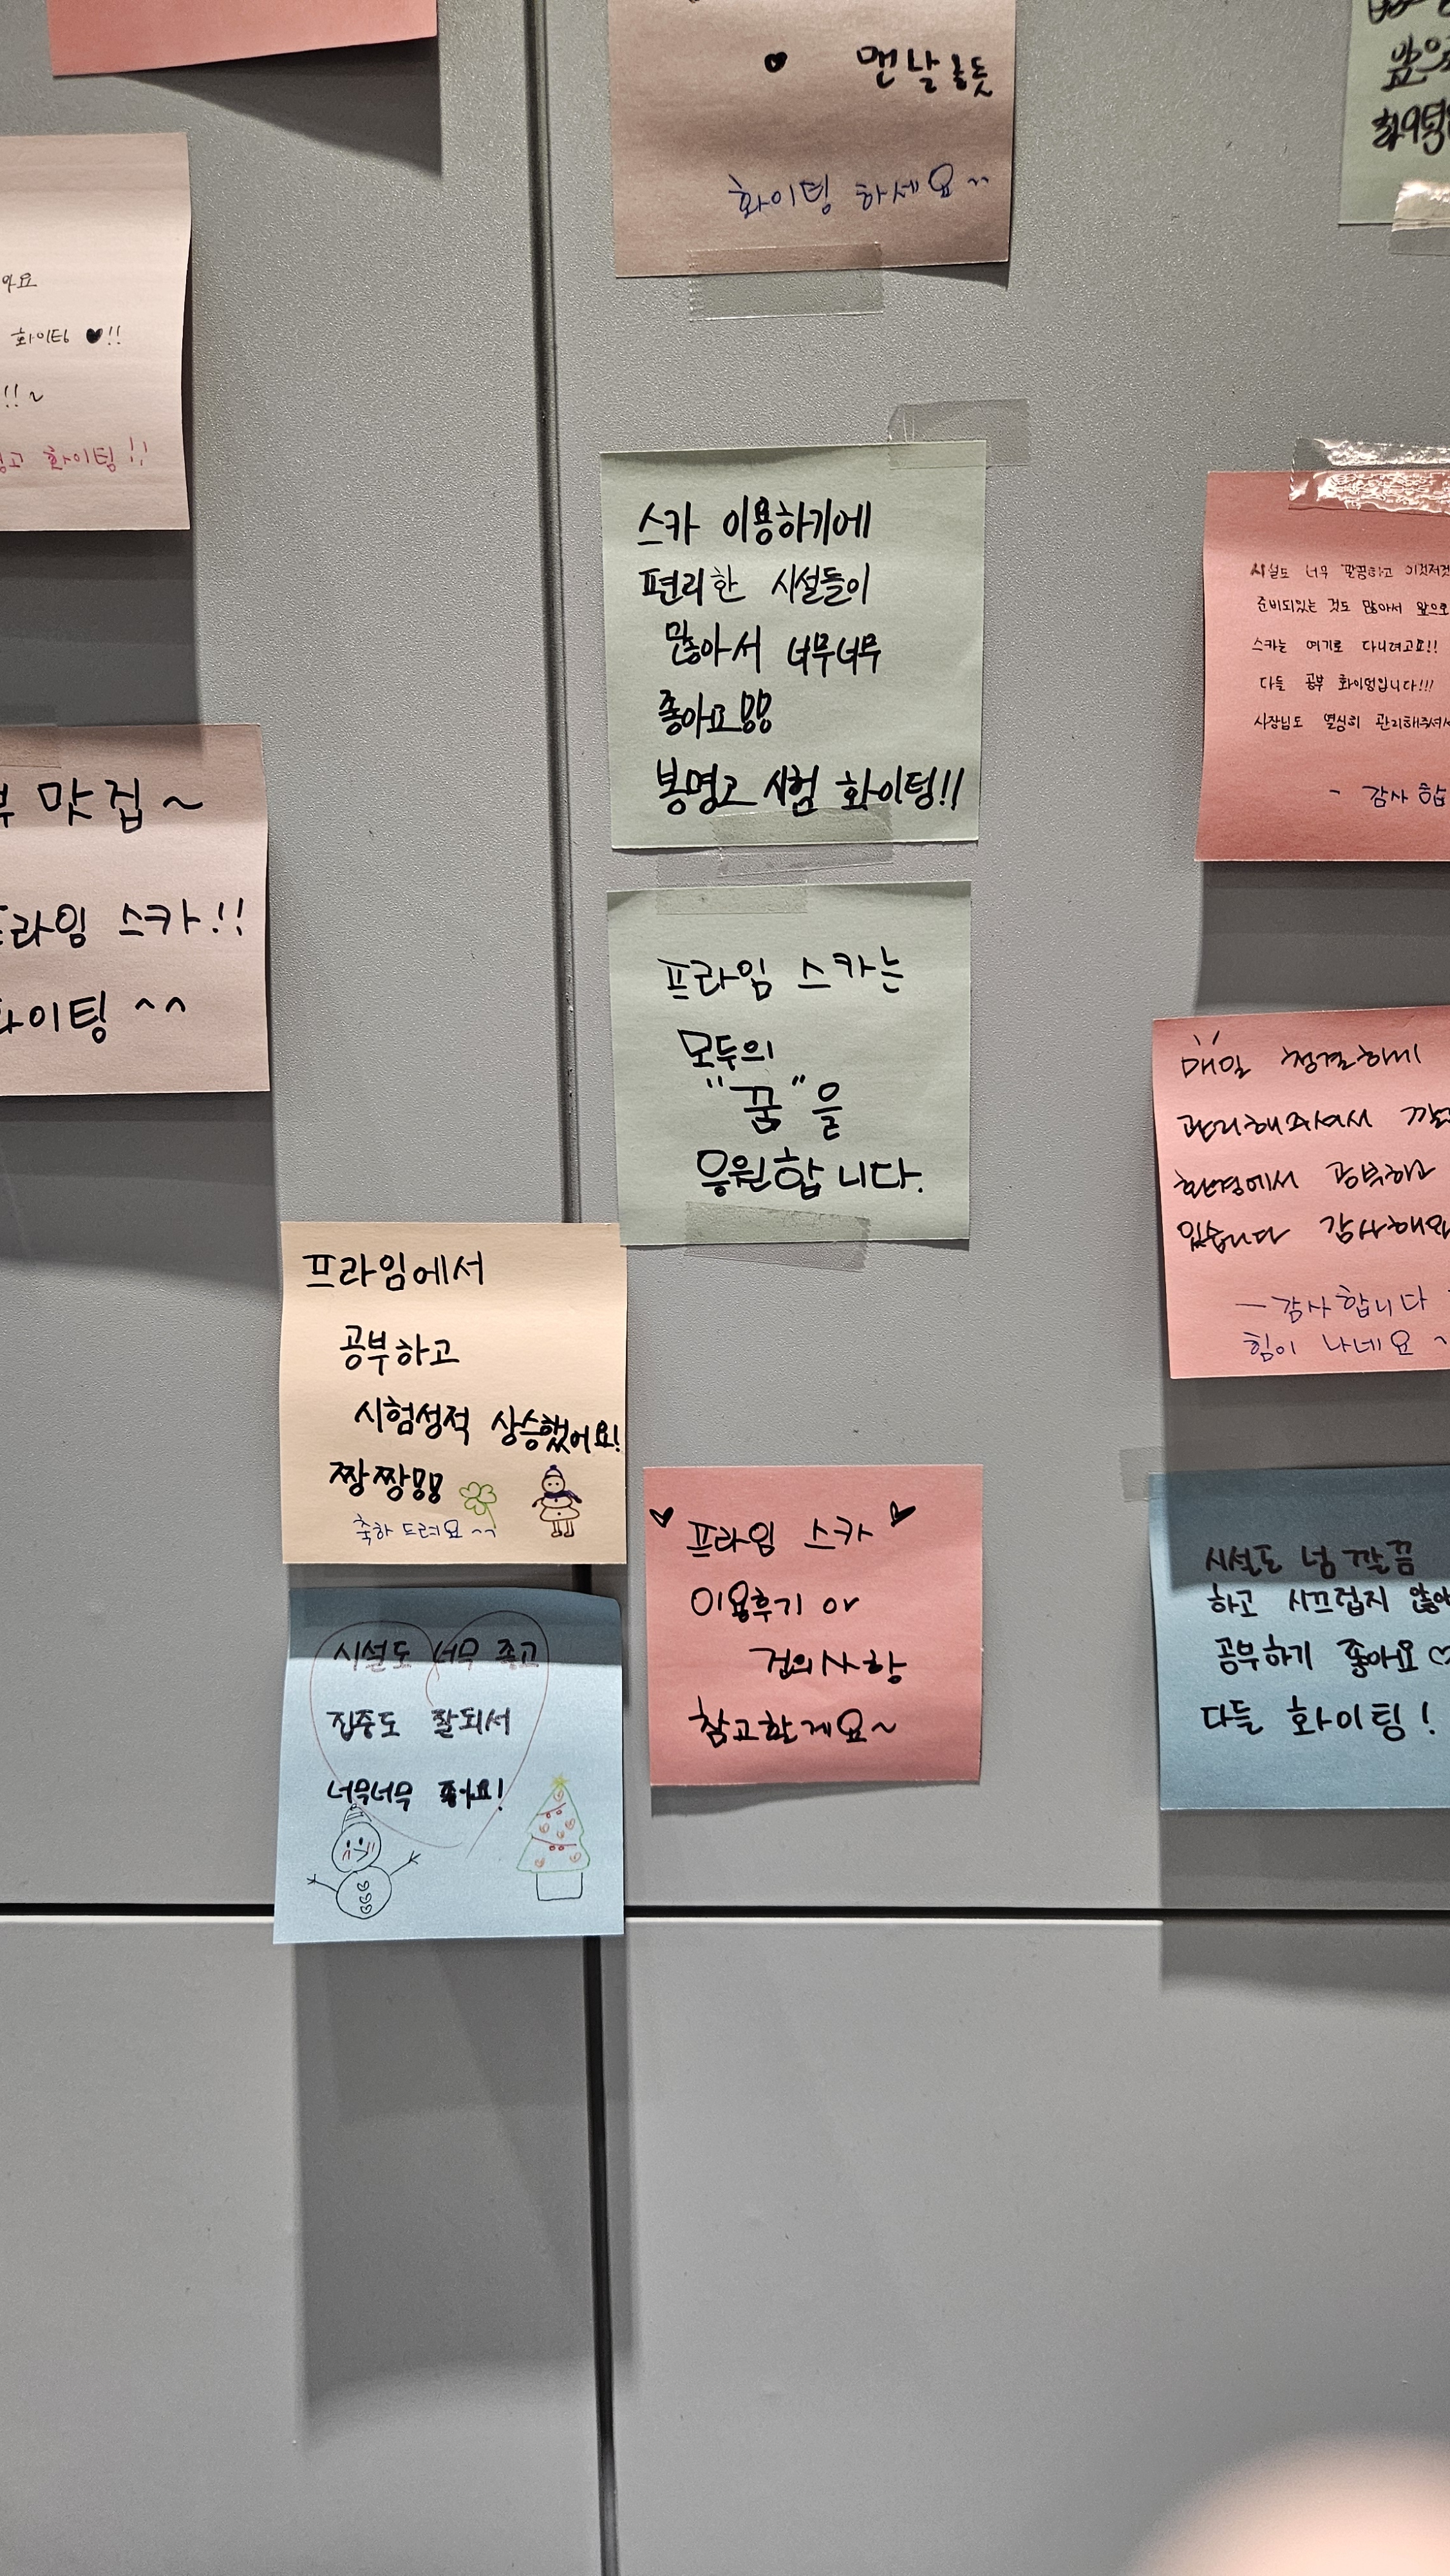 맨날 올듯
화이팅 하세요~~
앞으
화이팅
아요
화이팅 ♥!!
!!~
화이팅!!
스카 이용하기에
편리한 시설들이
많아서 너무너무
좋아요
봉명고 시험 화이팅!!
시설도 너무 깔끔하고 이것저것
준비되있는 것도 많아서 앞으로
스카는 여기로 다니려고요!!
다들 공부 화이팅입니다!!!
사장님도 열심히 관리해주셔서
- 감사 합
맛집~
프라임 스카!!
화이팅 ^^
프라임 스카는
모두의
"꿈"을
응원합니다.
매일 청결하게
관리해주셔서
환경에서 공부하고
있습니다 감사해요
- 감사합니다
힘이 나네요 ~
프라임에서
공부하고
시험성적 상승했어요!
짱짱
축하 드려요~~
♥ 프라임 스카 ♥
이용후기 or
건의사항
참고할게요~
시설도 너무 좋고
집중도 잘되서
너무너무 좋아요!
시설도 넘 깔끔
하고 시끄럽지 않아
공부하기 좋아요♡
다들 화이팅!